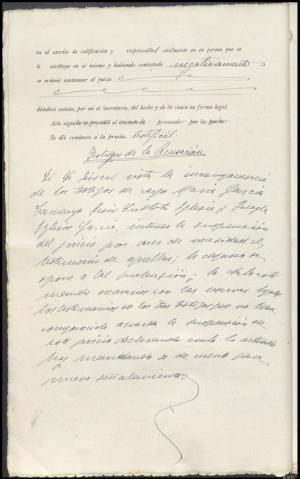 en el escrito de calificación y responsabilidad civilmente en su forma que se
le atribuye en el mismo y habiendo contestado negativamente
se ordenó continuar el juicio
dándose cuenta, por mí el Secretario, del hecho y de la causa en forma legal.
Acto seguido se procedió al examen de procesado por las partes
Se dió comienzo a la prueba testifical
Testigos de la Acusación
El Sr Fiscal vista la incomparecencia
de los testigos de cargo María García
Iglesia García, interesa la suspensión
del juicio por ser de necesidad el
testimonio de aquellos; la defensa se
opone a tal pretensión; la Sala
los testimonios de los tres testigos que no han
comparecido acuerda la suspensión de
este juicio declarando nulo lo actuado
hoy mandando se de nuevo para
nuevo señalamiento.